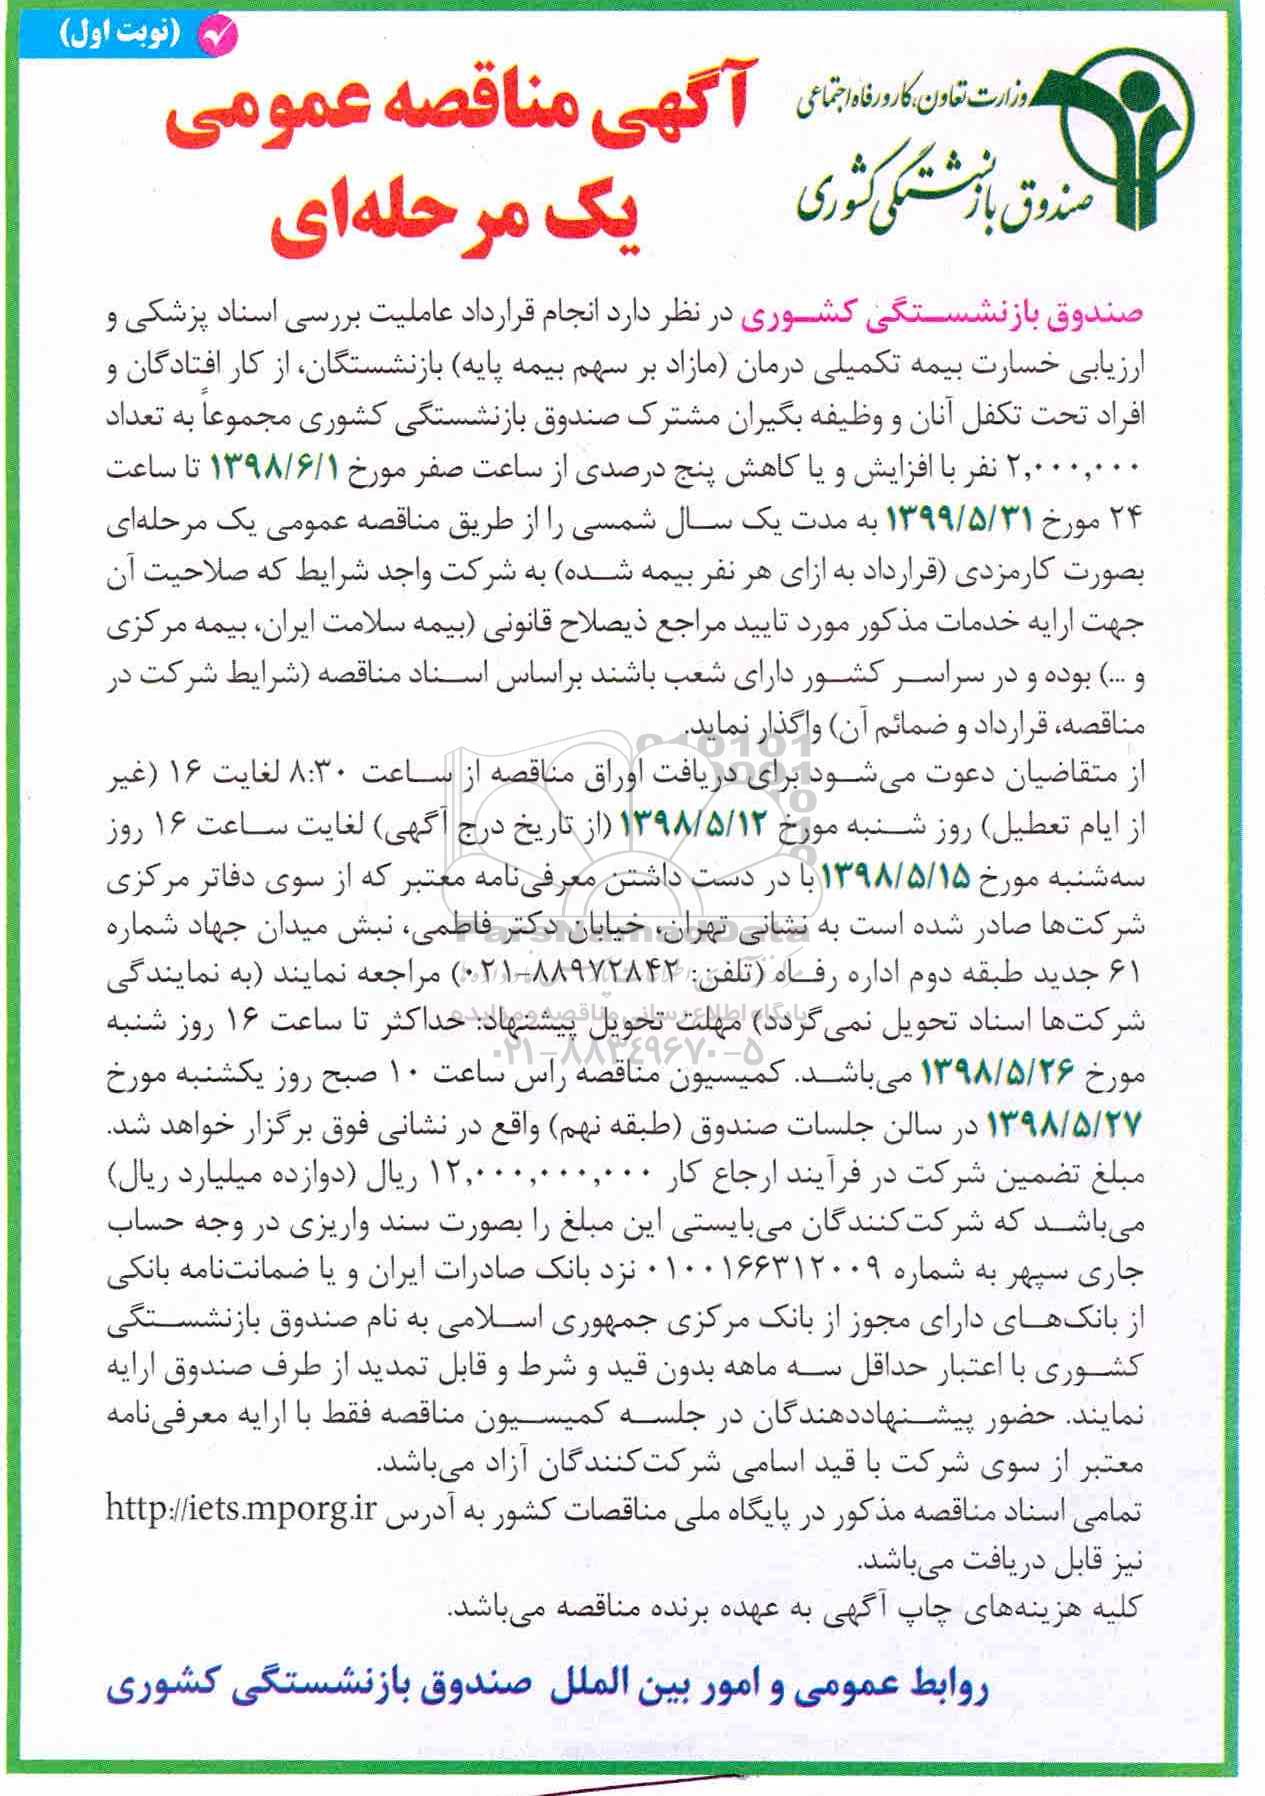 (نوبت اول)
وزارت تعاون، کار و رفاه اجتماعی
صندوق بازنشستگی کشوری
آگهی مناقصه عمومی
یک مرحله‌ای
صندوق بازنشستگی کشوری در نظر دارد انجام قرارداد عاملیت بررسی اسناد پزشکی و
ارزیابی خسارت بیمه تکمیلی درمان (مازاد بر سهم بیمه پایه) بازنشستگان، از کار افتادگان و
افراد تحت تکفل آنان و وظیفه بگیران مشترک صندوق بازنشستگی کشوری مجموعاً به تعداد
۲,۰۰۰,۰۰۰ نفر با افزایش و یا کاهش پنج درصدی از ساعت صفر مورخ ۱۳۹۸/۶/۱ تا ساعت
۲۴ مورخ ۱۳۹۹/۵/۳۱ به مدت یک سال شمسی را از طریق مناقصه عمومی یک مرحله‌ای
بصورت کارمزدی (قرارداد به ازای هر نفر بیمه شده) به شرکت واجد شرایط که صلاحیت آن
جهت ارایه خدمات مذکور مورد تایید مراجع ذیصلاح قانونی (بیمه سلامت ایران، بیمه مرکزی
و ...) بوده و در سراسر کشور دارای شعب باشند براساس اسناد مناقصه (شرایط شرکت در
مناقصه، قرارداد و ضمائم آن) واگذار نماید.
از متقاضیان دعوت می‌شود برای دریافت اوراق مناقصه از ساعت ۸:۳۰ لغایت ۱۶ (غیر
از ایام تعطیل) روز شنبه مورخ ۱۳۹۸/۵/۱۲ (از تاریخ درج آگهی) لغایت ساعت ۱۶ روز
سه‌شنبه مورخ ۱۳۹۸/۵/۱۵ با در دست داشتن معرفی‌نامه معتبر که از سوی دفاتر مرکزی
شرکت‌ها صادر شده است به نشانی تهران، خیابان دکتر فاطمی، نبش میدان جهاد شماره
۶۱ جدید طبقه دوم اداره رفاه (تلفن: ۸۸۹۷۲۸۴۲-۰۲۱) مراجعه نمایند (به نمایندگی
شرکت‌ها اسناد تحویل نمی‌گردد) مهلت تحویل پیشنهاد: حداکثر تا ساعت ۱۶ روز شنبه
مورخ ۱۳۹۸/۵/۲۶ می‌باشد. کمیسیون مناقصه راس ساعت ۱۰ صبح روز یکشنبه مورخ
۱۳۹۸/۵/۲۷ در سالن جلسات صندوق (طبقه نهم) واقع در نشانی فوق برگزار خواهد شد.
مبلغ تضمین شرکت در فرآیند ارجاع کار ۱۲,۰۰۰,۰۰۰,۰۰۰ ریال (دوازده میلیارد ریال)
می‌باشد که شرکت‌کنندگان می‌بایستی این مبلغ را بصورت سند واریزی در وجه حساب
جاری سپهر به شماره ۰۱۰۰۱۶۶۳۱۲۰۰۹ نزد بانک صادرات ایران و یا ضمانت‌نامه بانکی
از بانک‌های دارای مجوز از بانک مرکزی جمهوری اسلامی به نام صندوق بازنشستگی
کشوری با اعتبار حداقل سه ماهه بدون قید و شرط و قابل تمدید از طرف صندوق ارایه
نمایند. حضور پیشنهاددهندگان در جلسه کمیسیون مناقصه فقط با ارایه معرفی‌نامه
معتبر از سوی شرکت با قید اسامی شرکت‌کنندگان آزاد می‌باشد.
تمامی اسناد مناقصه مذکور در پایگاه ملی مناقصات کشور به آدرس http://iets.mporg.ir
نیز قابل دریافت می‌باشد.
کلیه هزینه‌های چاپ آگهی به عهده برنده مناقصه می‌باشد.
روابط عمومی و امور بین الملل صندوق بازنشستگی کشوری
ParsNamadData
پایگاه اطلاع رسانی مناقصه و مزایده
۰۲۱-۸۸۳۴۹۶۷۰-۵